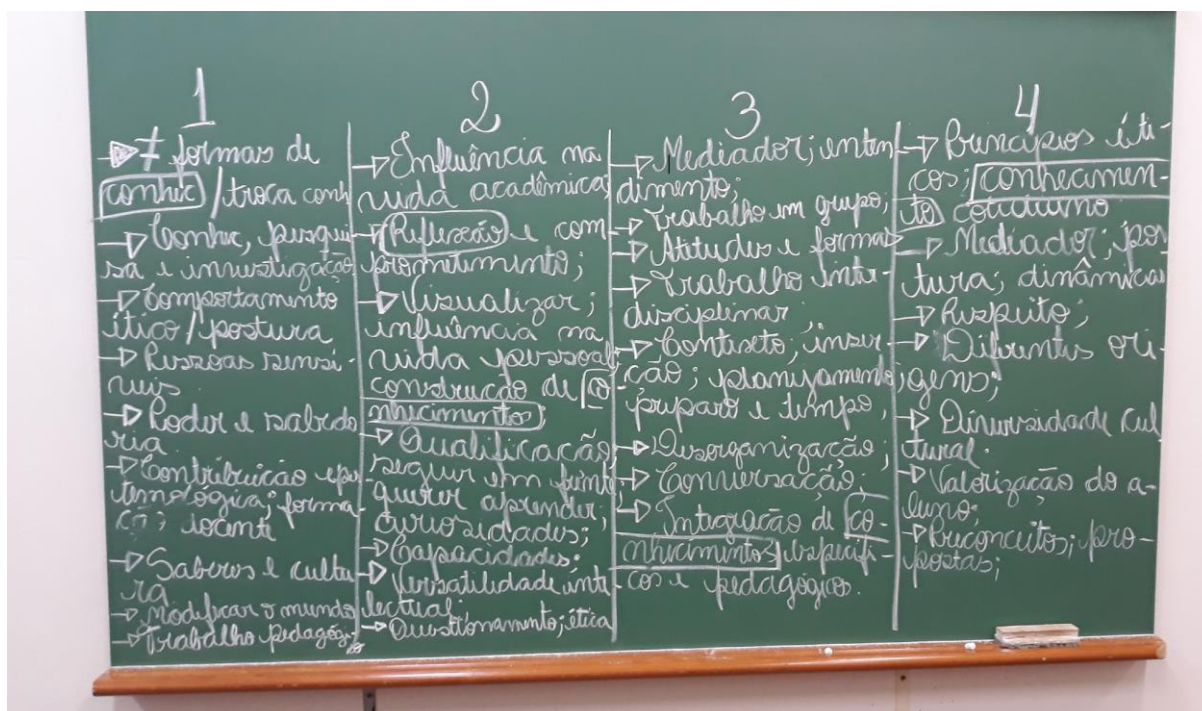 1
→ ≠ formas de
conhec / troca conh
→ Conhec, pesqui
sa e investigação
→ Comportamento
ético / postura
→ Pessoas sensí-
veis
→ Poder e sabedo
ria
→ Contribuição epis
temológica; forma
docente
→ Saberes e cultu
ra
→ Modificar o mundo
→ Trabalho pedagógi
co
2
→ Influência na
vida acadêmica
→ Reflexão e com
prometimento;
→ Visualizar;
influência na
vida pessoal
construção de co-
nhecimentos
→ Qualificação;
seguir em frente
querer aprender;
curiosidades;
→ Capacidades;
→ Versatilidade inte
lectual.
→ Questionamento; ética
3
→ Mediador; enten
dimento;
→ Trabalho em grupo;
→ Atitudes e formas
→ Trabalho inter-
disciplinar
→ Contexto; inser-
ção; planejamento;
preparo e tempo;
→ Desorganização;
→ Conversação;
→ Integração de co-
nhecimentos específi-
cos e pedagógico.
4
→ Princípios éti-
cos; conhecimen-
to cotidiano
→ Mediador; pos
tura; dinâmica
→ Respeito;
→ Diferentes ori-
gens;
→ Diversidade cul
tural.
→ Valorização do a-
luno;
→ Preconceitos; pro-
postas;